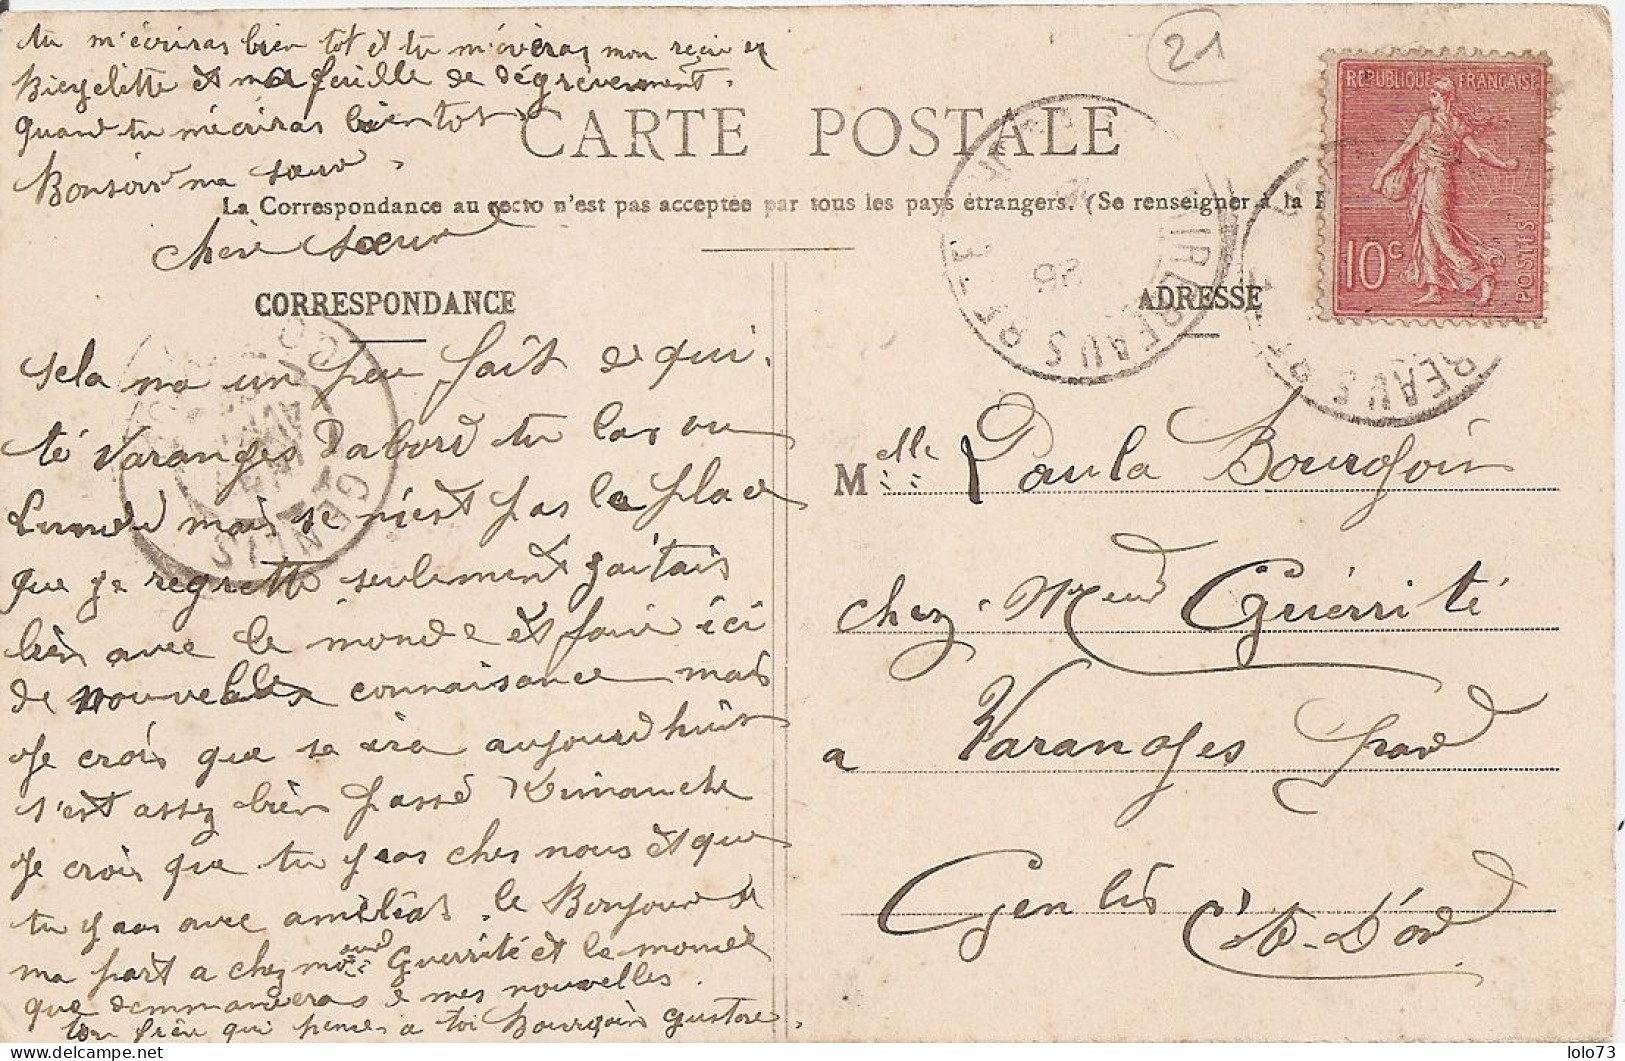 tu m'écriras bien tot et tu m'óvèras mon reçu de
Bicyclette et ma feuille de dégrèvement.
quand tu mécriras bien tot
Bonsoir ma sœur.
21
REPUBLIQUE FRANÇAISE
10c
POSTES
CARTE POSTALE
La Correspondance au recto n'est pas acceptée par tous les pays étrangers. (Se renseigner à la
chère sœur
CORRESPONDANCE
ADRESSE
26
sela ma un peu fait de qui
té Varanges Dabord tu las vu
Lundu mais se n'est pas la place
que je regrette seulement j'aitais
bien avec le monde et faire ici
de nouvelles connaisance mais
Je crois que sa ira aujourd huit
s'est assez bien passé Dimanche
Je crois que tu yras ches nous et que
tu yras avec amélias. le Bonjour de
ma part a chez Mosieur Guerrité et le monde
que demmanderas de mes nouvelles.
ton frère qui penses a toi Bourgoin gustave.
Melle Paula Bourgoin
chez Mr Guérrité
a Varanges par
Genlis Côte-D'or
GENLIS
CÔTE-D'OR
lolo73